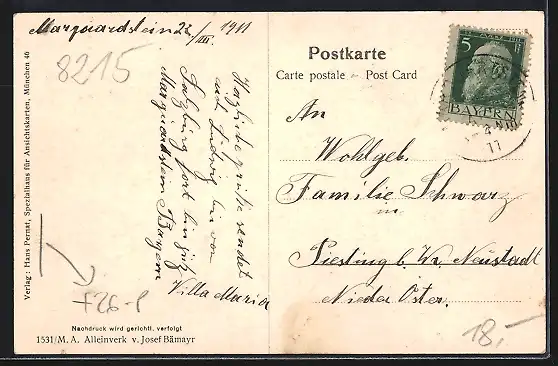 Marquardstein 22/III. 1911
8215
Herzliche Grüße sendet
aus Ludwig bin von
Salzburg fort bin jetz
Marquardstein Bayern
Villa Maria
F26-P
Verlag: Hans Pernat, Spezialhaus für Ansichtskarten, München 46
Nachdruck wird gerichtl. verfolgt
1531/M. A. Alleinverk v. Josef Bämayr
Postkarte
Carte postale – Post Card
5
BAYERN
11
An
Wohlgeb.
Familie Schwarz
in
Piesting b. Wr. Neustadt
Nieder Öster.
18,-